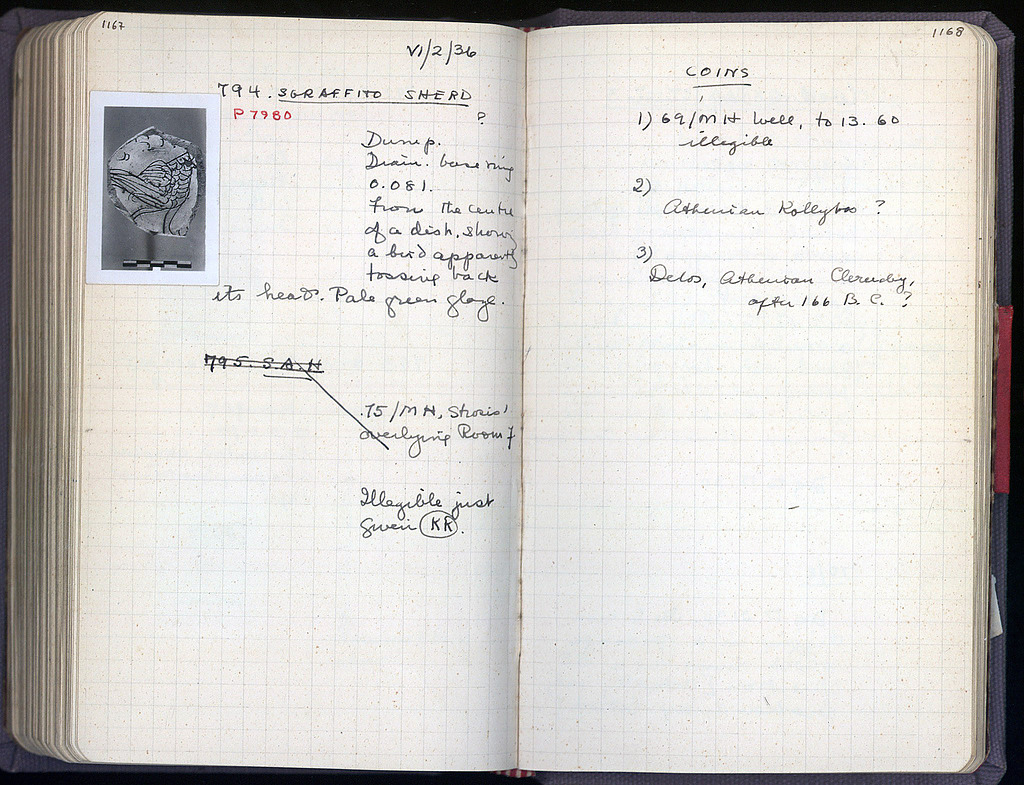 1167
VI/2/36
794. SGRAFFITO SHERD
P 7980
?
Dump.
Diam. base ring
0.081.
From the centre
of a dish, showing
a bird apparently
tossing back
its head. Pale green glaze.
795. S.A.H
75/MH, Strosis'
overlying Room 7
Illegible just
given KR.
1168
COINS
1) 69/MH Well, to 13.60
illegible
2)
Athenian Kollybos ?
3)
Delos, Athenian Cleruchy,
after 166 B.C. ?